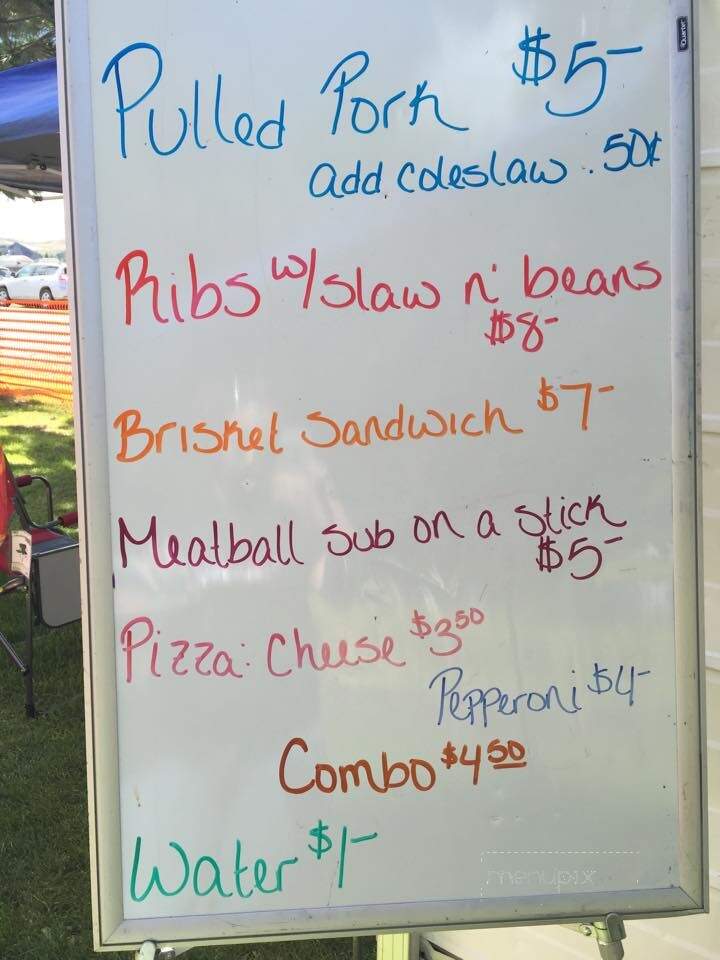 Quartet
Pulled Pork $5-
add coleslaw .50¢
Ribs w/slaw n' beans
$8-
Brisket Sandwich $7-
Meatball sub on a stick
$5-
Pizza: Cheese $3.50
Pepperoni $4-
Combo $4.50
Water $1-
menupix